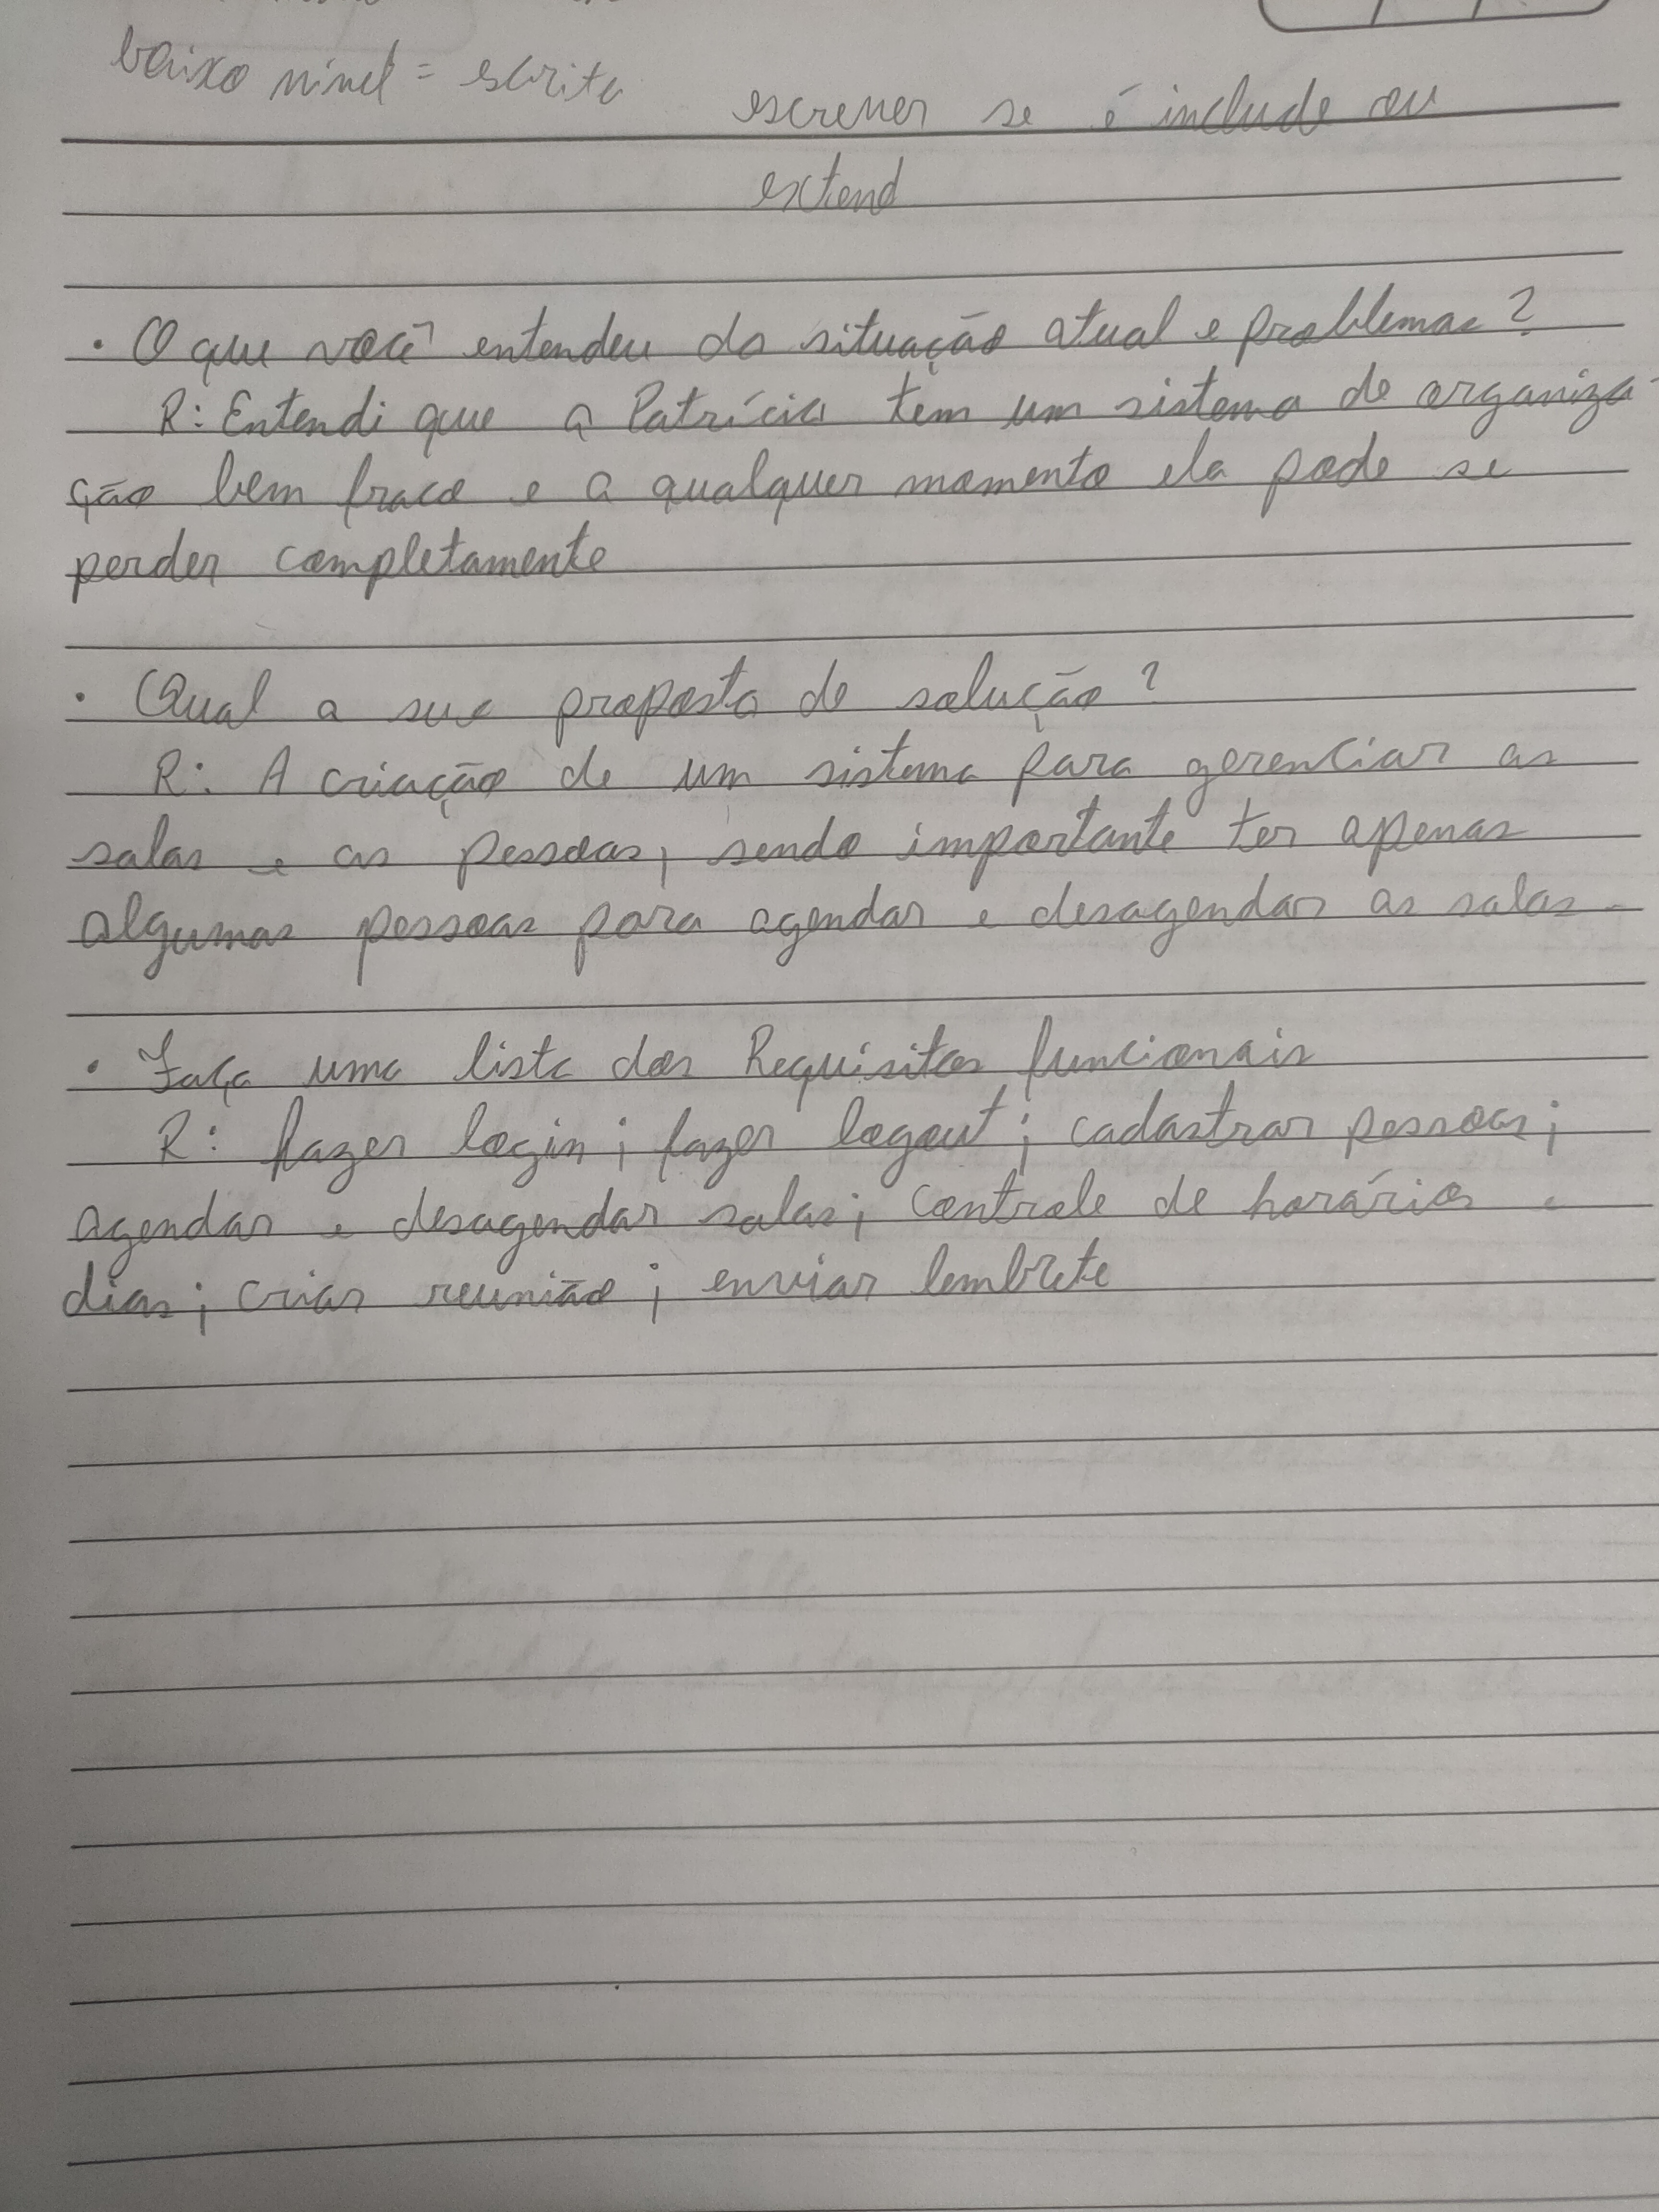 baixo nível = escrita
escrever se é include ou
extend
• O que você entendeu da situação atual e problemas?
R: Entendi que a Patrícia tem um sistema de organiza-
ção bem fraco e a qualquer momento ela pode se
perder completamente
• Qual a sua proposta de solução?
R: A criação de um sistema para gerenciar as
salas e as pessoas, sendo importante ter apenas
algumas pessoas para agendar e desagendar as salas.
• Faça uma lista dos Requisitos funcionais
R: fazer login; fazer logout; cadastrar pessoas;
agendar e desagendar salas; controle de horários e
dias; criar reunião; enviar lembrete